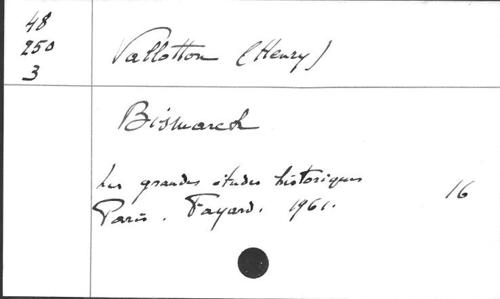 48
250
3
Vallotton (Henry)
Bismarck
Les grandes études historiques
Paris. Fayard. 1961.
16